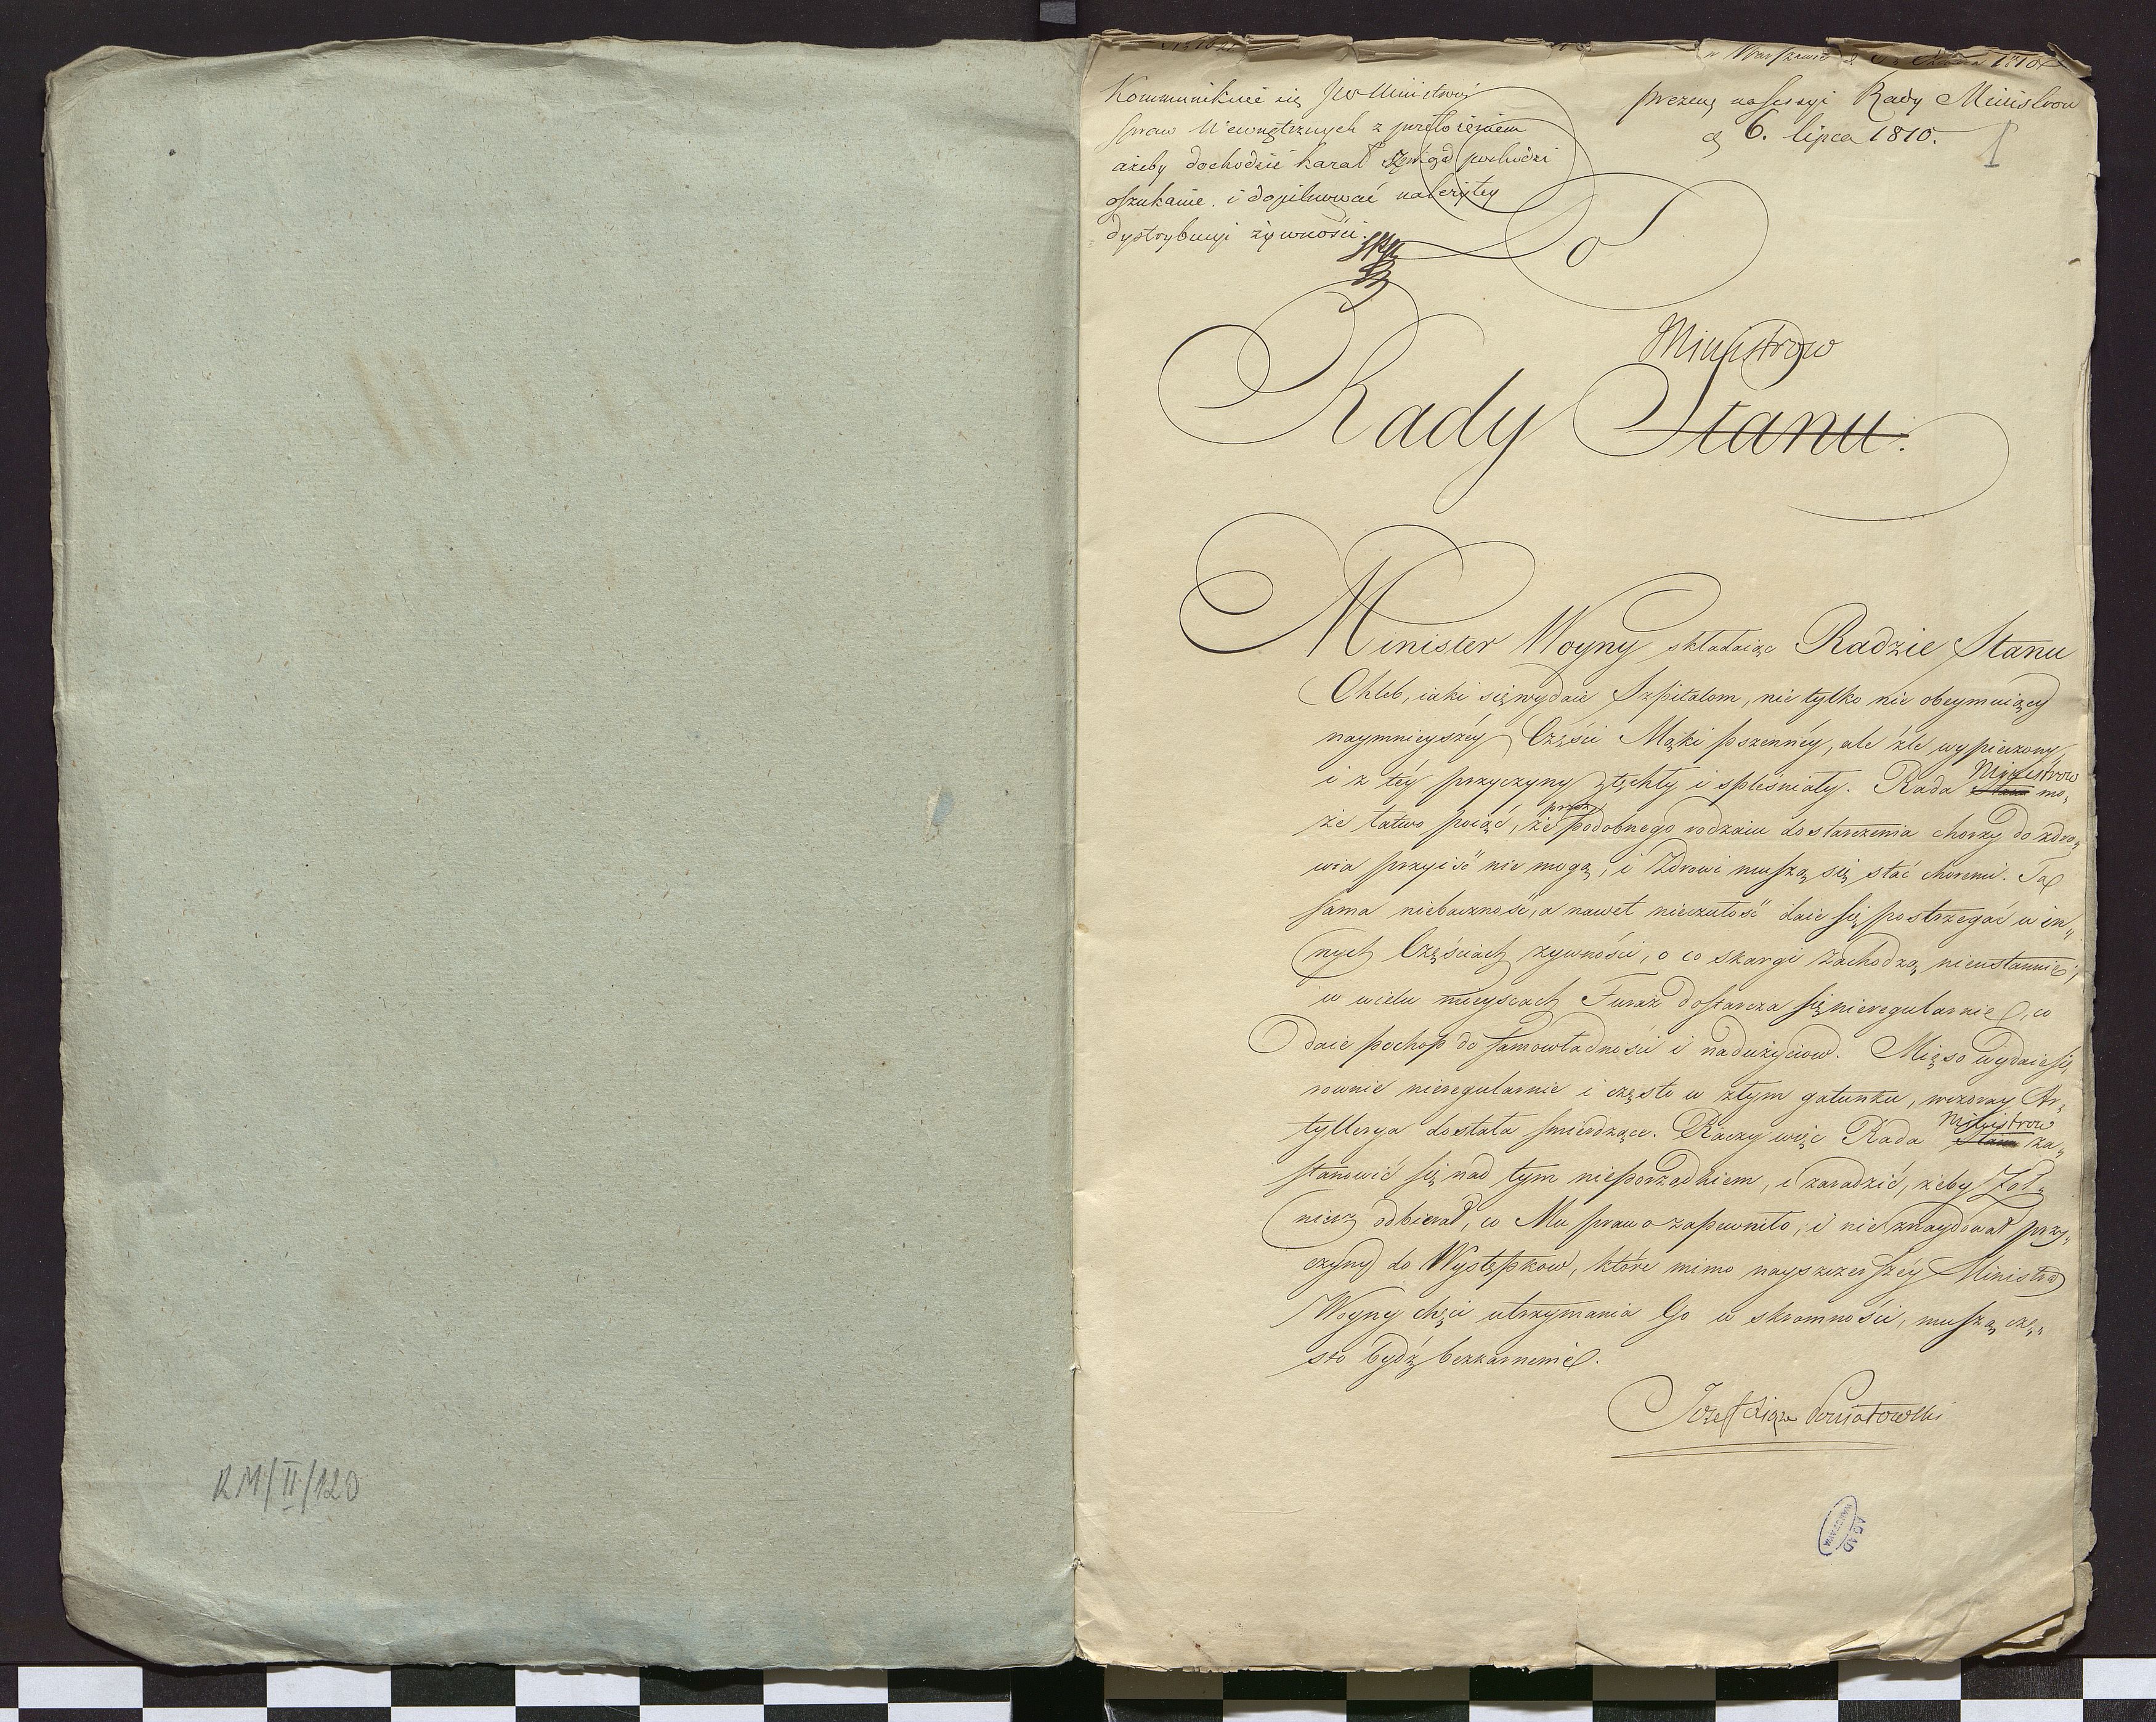 w Warszawie d. 1810
Kommunikuie się JW Ministrowi
spraw Wewnętrznych z przełożeniem
ażeby dochodził karał zkąd pochodzi
oszukanie. i dopilnował należytey
dystrybucyi żywności.
prezen, na sessyi Rady Ministrow
d 6. lipca 1810.
1
Do
Ministrow
Rady Stanu.
Minister Woyny składaiąc Radzie Stanu
Chleb, iaki się wydaie Szpitalom, nie tylko nie obeymuiący
naymnieyszéy Części Mąki pszennéy, ale źle wypieczony,
i z téy przyczyny ztęchły i spleśniały. Rada Ministrow Stanu mo„
że łatwo poiąć, że przez podobnego rodzaiu dostarczenia chorzy do zdro„
wia przyiść nie mogą, i Zdrowi muszą się stać choremi. Ta
sama niebaczność, a nawet nieczułość daie się postrzegać w in„
nych Częściach żywności, o co skargi zachodzą nieustannie;
w wielu mieyscach Furaż dostarcza się nieregularnie, co
daie pochop do samowładności i nadużyciow. Mięso wydaie się
rownie nieregularnie i często w złym gatunku, wczoray Ar„
tyllerya dostała smierdzące. Raczy więc Rada Ministrow Stanu za„
stanowić się nad tym nieporządkiem, i zaradzić, żeby Żoł„
nierz odbierał, co Mu prawo zapewniło, i nie znaydował przy„
czyny do Występkow, które mimo nayszczerszéy Ministra
Woyny chęci utrzymania Go w skromności, muszą czę„
sto bydź bezkarnemi.
Jozef Xiąże Poniatowski
RM/II/120
AGAD
WARSZAWA